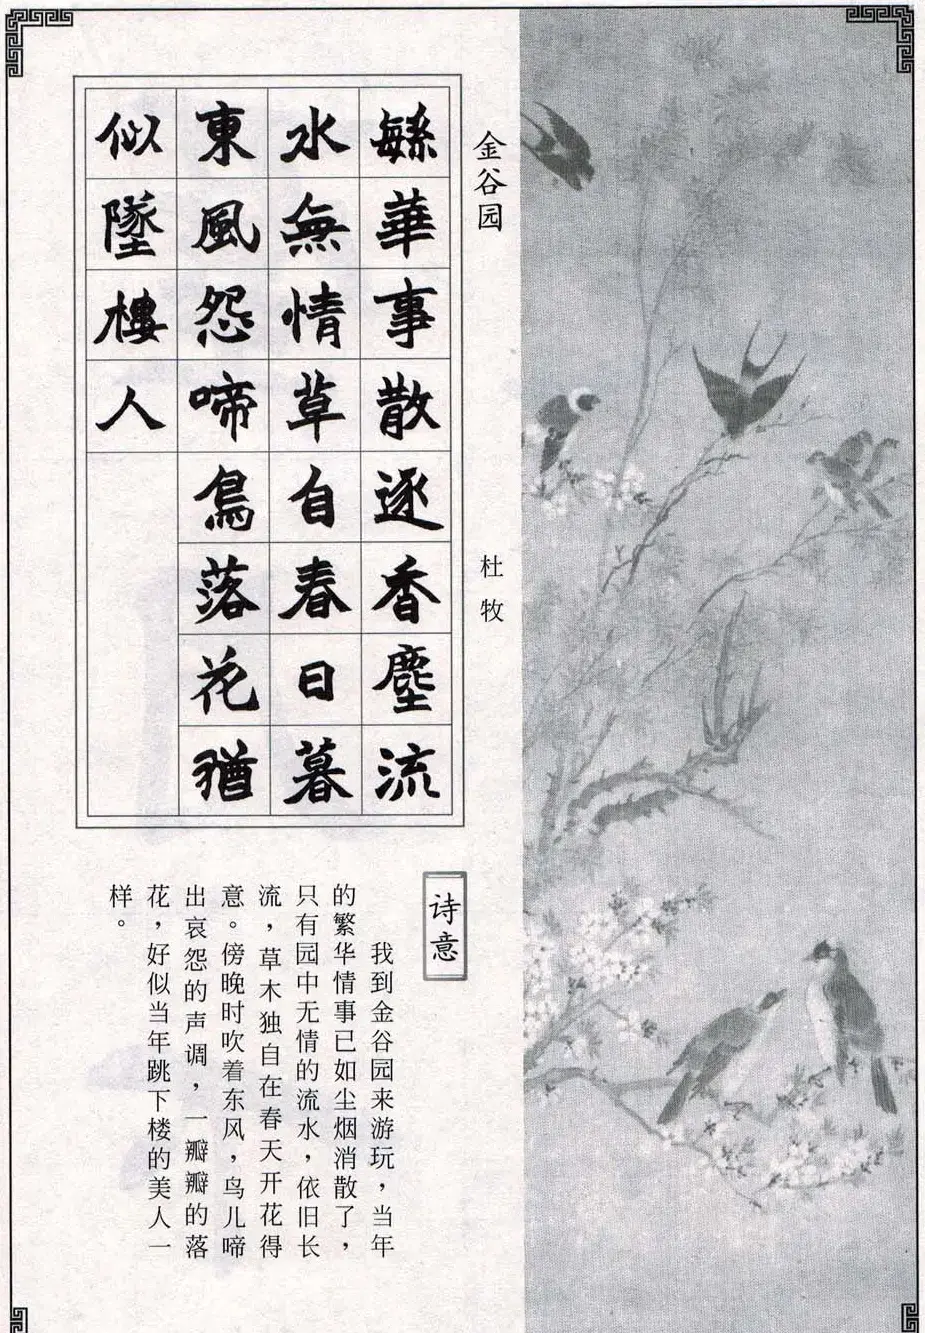 金谷园
杜牧
緐華事散逐香塵流
水無情草自春日暮
東風怨啼鳥落花猶
似墜樓人
诗意
我到金谷园来游玩，当年
的繁华情事已如尘烟消散了，
只有园中无情的流水，依旧长
流，草木独自在春天开花得
意。傍晚时吹着东风，鸟儿啼
出哀怨的声调，一瓣瓣的落
花，好似当年跳下楼的美人一
样。